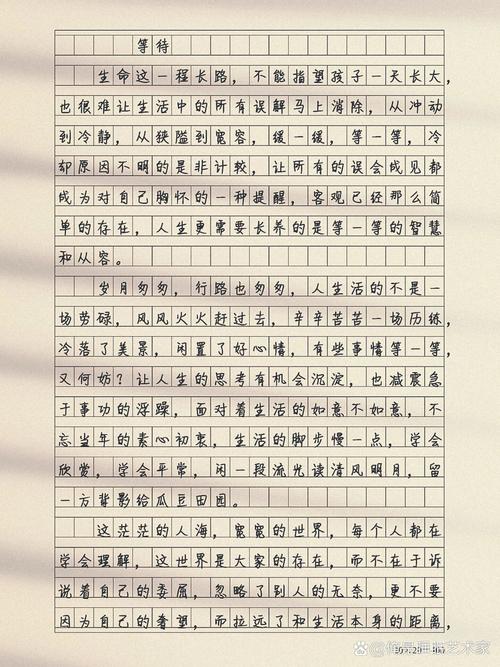 等待
生命这一程长路，不能指望孩子一天长大，
也很难让生活中的所有误解马上消除，从冲动
到冷静，从狭隘到宽容，缓一缓，等一等，冷
却原因不明的是非计较，让所有的误会成见都
成为对自己胸怀的一种提醒，客观已经那么简
单的存在，人生更需要长养的是等一等的智慧
和从容。
岁月匆匆，行路也匆匆，人生活的不是一
场劳碌，风风火火赶过去，辛辛苦苦一场历练，
冷落了美景，闲置了好心情，有些事情等一等，
又何妨？让人生的思考有机会沉淀，也减震急
于事功的浮躁，面对着生活的如意不如意，不
忘当年的素心初衷，生活的脚步慢一点，学会
欣赏，学会平常，闲一段流光读清风明月，留
一方背影给瓜豆田园。
这茫茫的人海，宽宽的世界，每个人都在
学会理解，这世界是大家的存在，而不在于诉
说着自己的委屈，忽略了别人的无奈，更不要
因为自己的奢望，而拉远了和生活本身的距离，